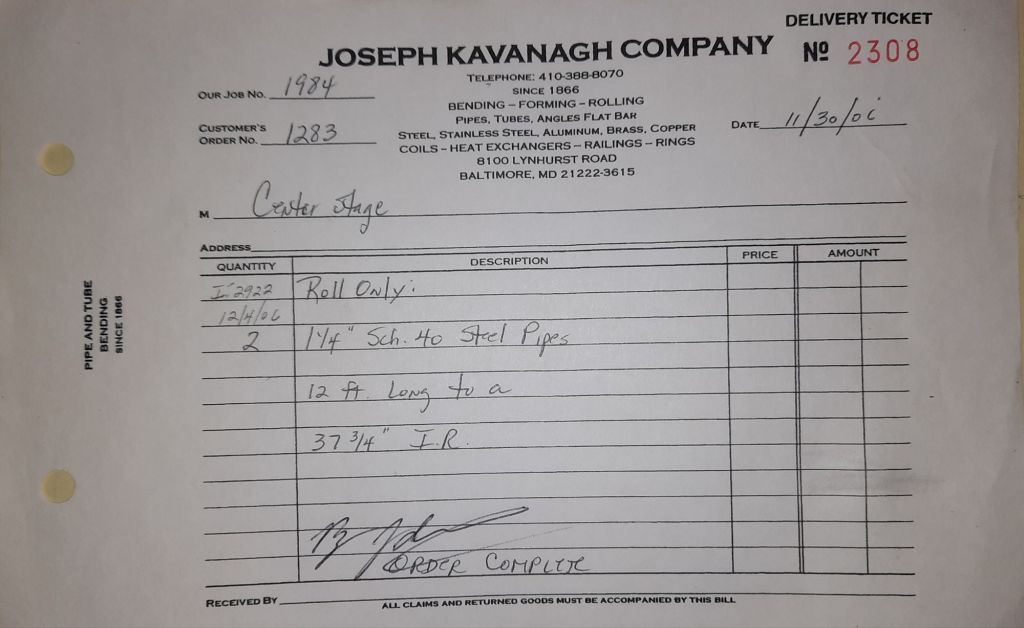 DELIVERY TICKET
JOSEPH KAVANAGH COMPANY
Nº 2308
TELEPHONE: 410-388-8070
SINCE 1866
BENDING – FORMING – ROLLING
PIPES, TUBES, ANGLES FLAT BAR
STEEL, STAINLESS STEEL, ALUMINUM, BRASS, COPPER
COILS – HEAT EXCHANGERS – RAILINGS – RINGS
8100 LYNHURST ROAD
BALTIMORE, MD 21222-3615
OUR JOB NO. 1984
CUSTOMER'S
ORDER NO. 1283
DATE 11/30/06
M Center Stage
ADDRESS
QUANTITY DESCRIPTION PRICE AMOUNT
I-2922 Roll Only:
12/4/06
2 1¼" Sch. 40 Steel Pipes
12 ft. Long to a
37 3/4" I.R.
ORDER COMPLETE
RECEIVED BY
ALL CLAIMS AND RETURNED GOODS MUST BE ACCOMPANIED BY THIS BILL
PIPE AND TUBE
BENDING
SINCE 1866